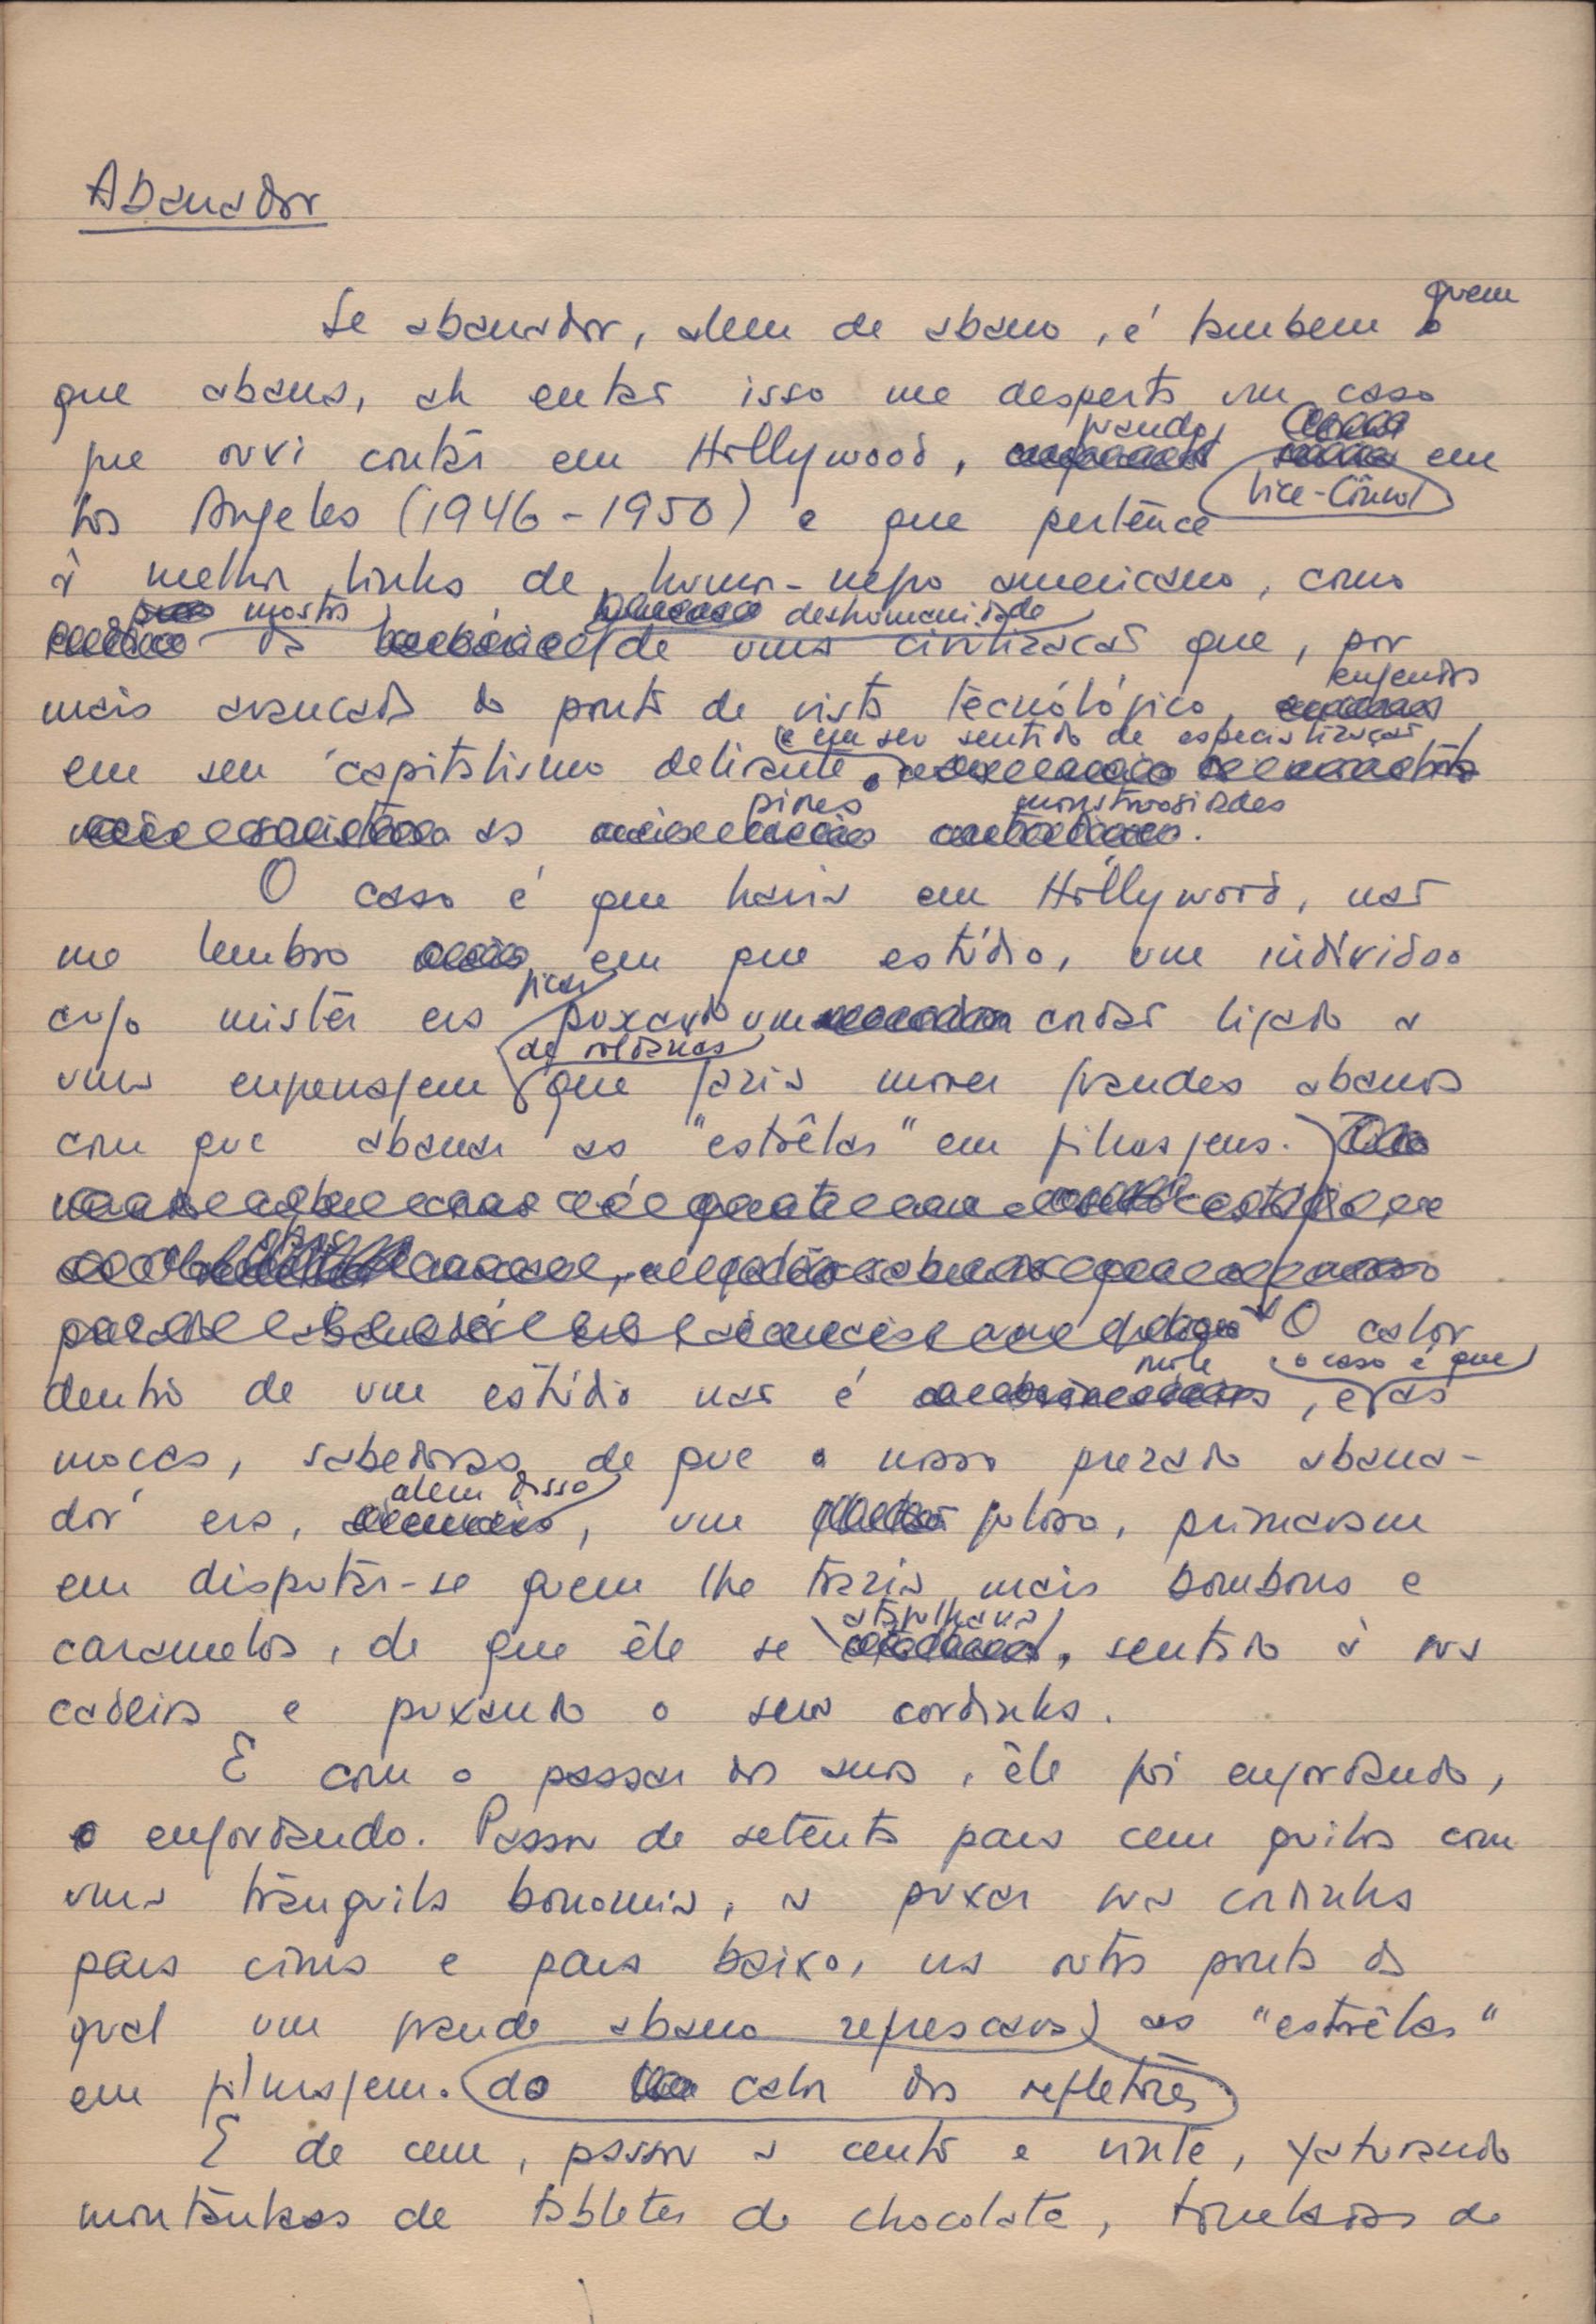 Abanador
Se abanador, alem de abano, é tambem quem
que abana, ah então isso me desperta um caso
que ouvi contar em Hollywood, quando Vice-Cônsul em
Los Angeles (1946-1950) e que pertence
à melhor linha de humor-negro americano, como
mostra da deshumanidade de uma civilização que, por
mais avançada do ponto de vista tecnológico, engendra
em seu capitalismo delirante e em seu sentido de especialização,
as piores monstruosidades.
O caso é que havia em Hollywood, não
me lembro em que estúdio, um indivíduo
cujo mistér era ficar puxando um cordão ligado a
uma engenagem de roldanas que fazia mover grandes abanos
com que abanar as "estrêlas" em filmagens.
O calor
dentro de um estúdio não é mole, e o caso é que as
moças, sabedoras de que o nosso prezado abana-
dor era, alem disso, um guloso, primavam
em disputar-se quem lhe trazia mais bombons e
caramelos, de que êle se atafulhava, sentado à sua
cadeira e puxando a sua cordinha.
E com o passar dos anos, êle foi engordando,
e engordando. Passou de setenta para cem quilos com
uma tranquila bonomia, a puxar sua cordinha
para cima e para baixo, na outra ponta da
qual um grande abano refrescava as "estrêlas"
em filmagem. do calor dos refletores
E de cem, passou a cento e vinte, saturando
montanhas de tabletes de chocolate, toneladas de